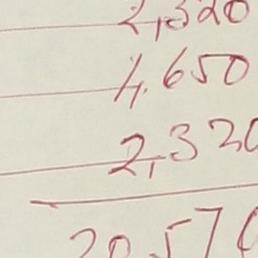 2,320
4,650
2,320
20,570